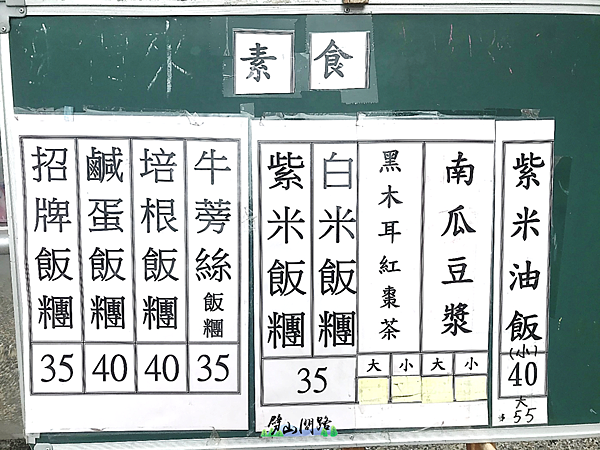 素食
招牌飯糰
35
鹹蛋飯糰
40
培根飯糰
40
牛蒡絲飯糰
35
紫米飯糰
白米飯糰
35
黑木耳紅棗茶
大 小
南瓜豆漿
大 小
紫米油飯
(小)
40
大
$55
劈山開路